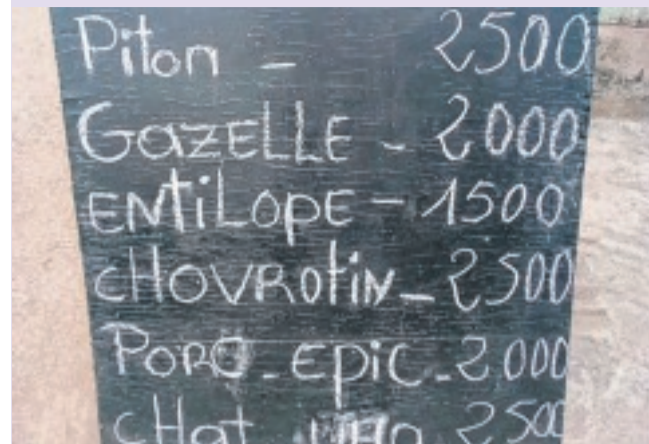 Piton - 2500
GAZELLE - 2000
ENTiLOPE - 1500
CHOVROtiN - 2500
PORO - EPiC - 2000
CHat 2500